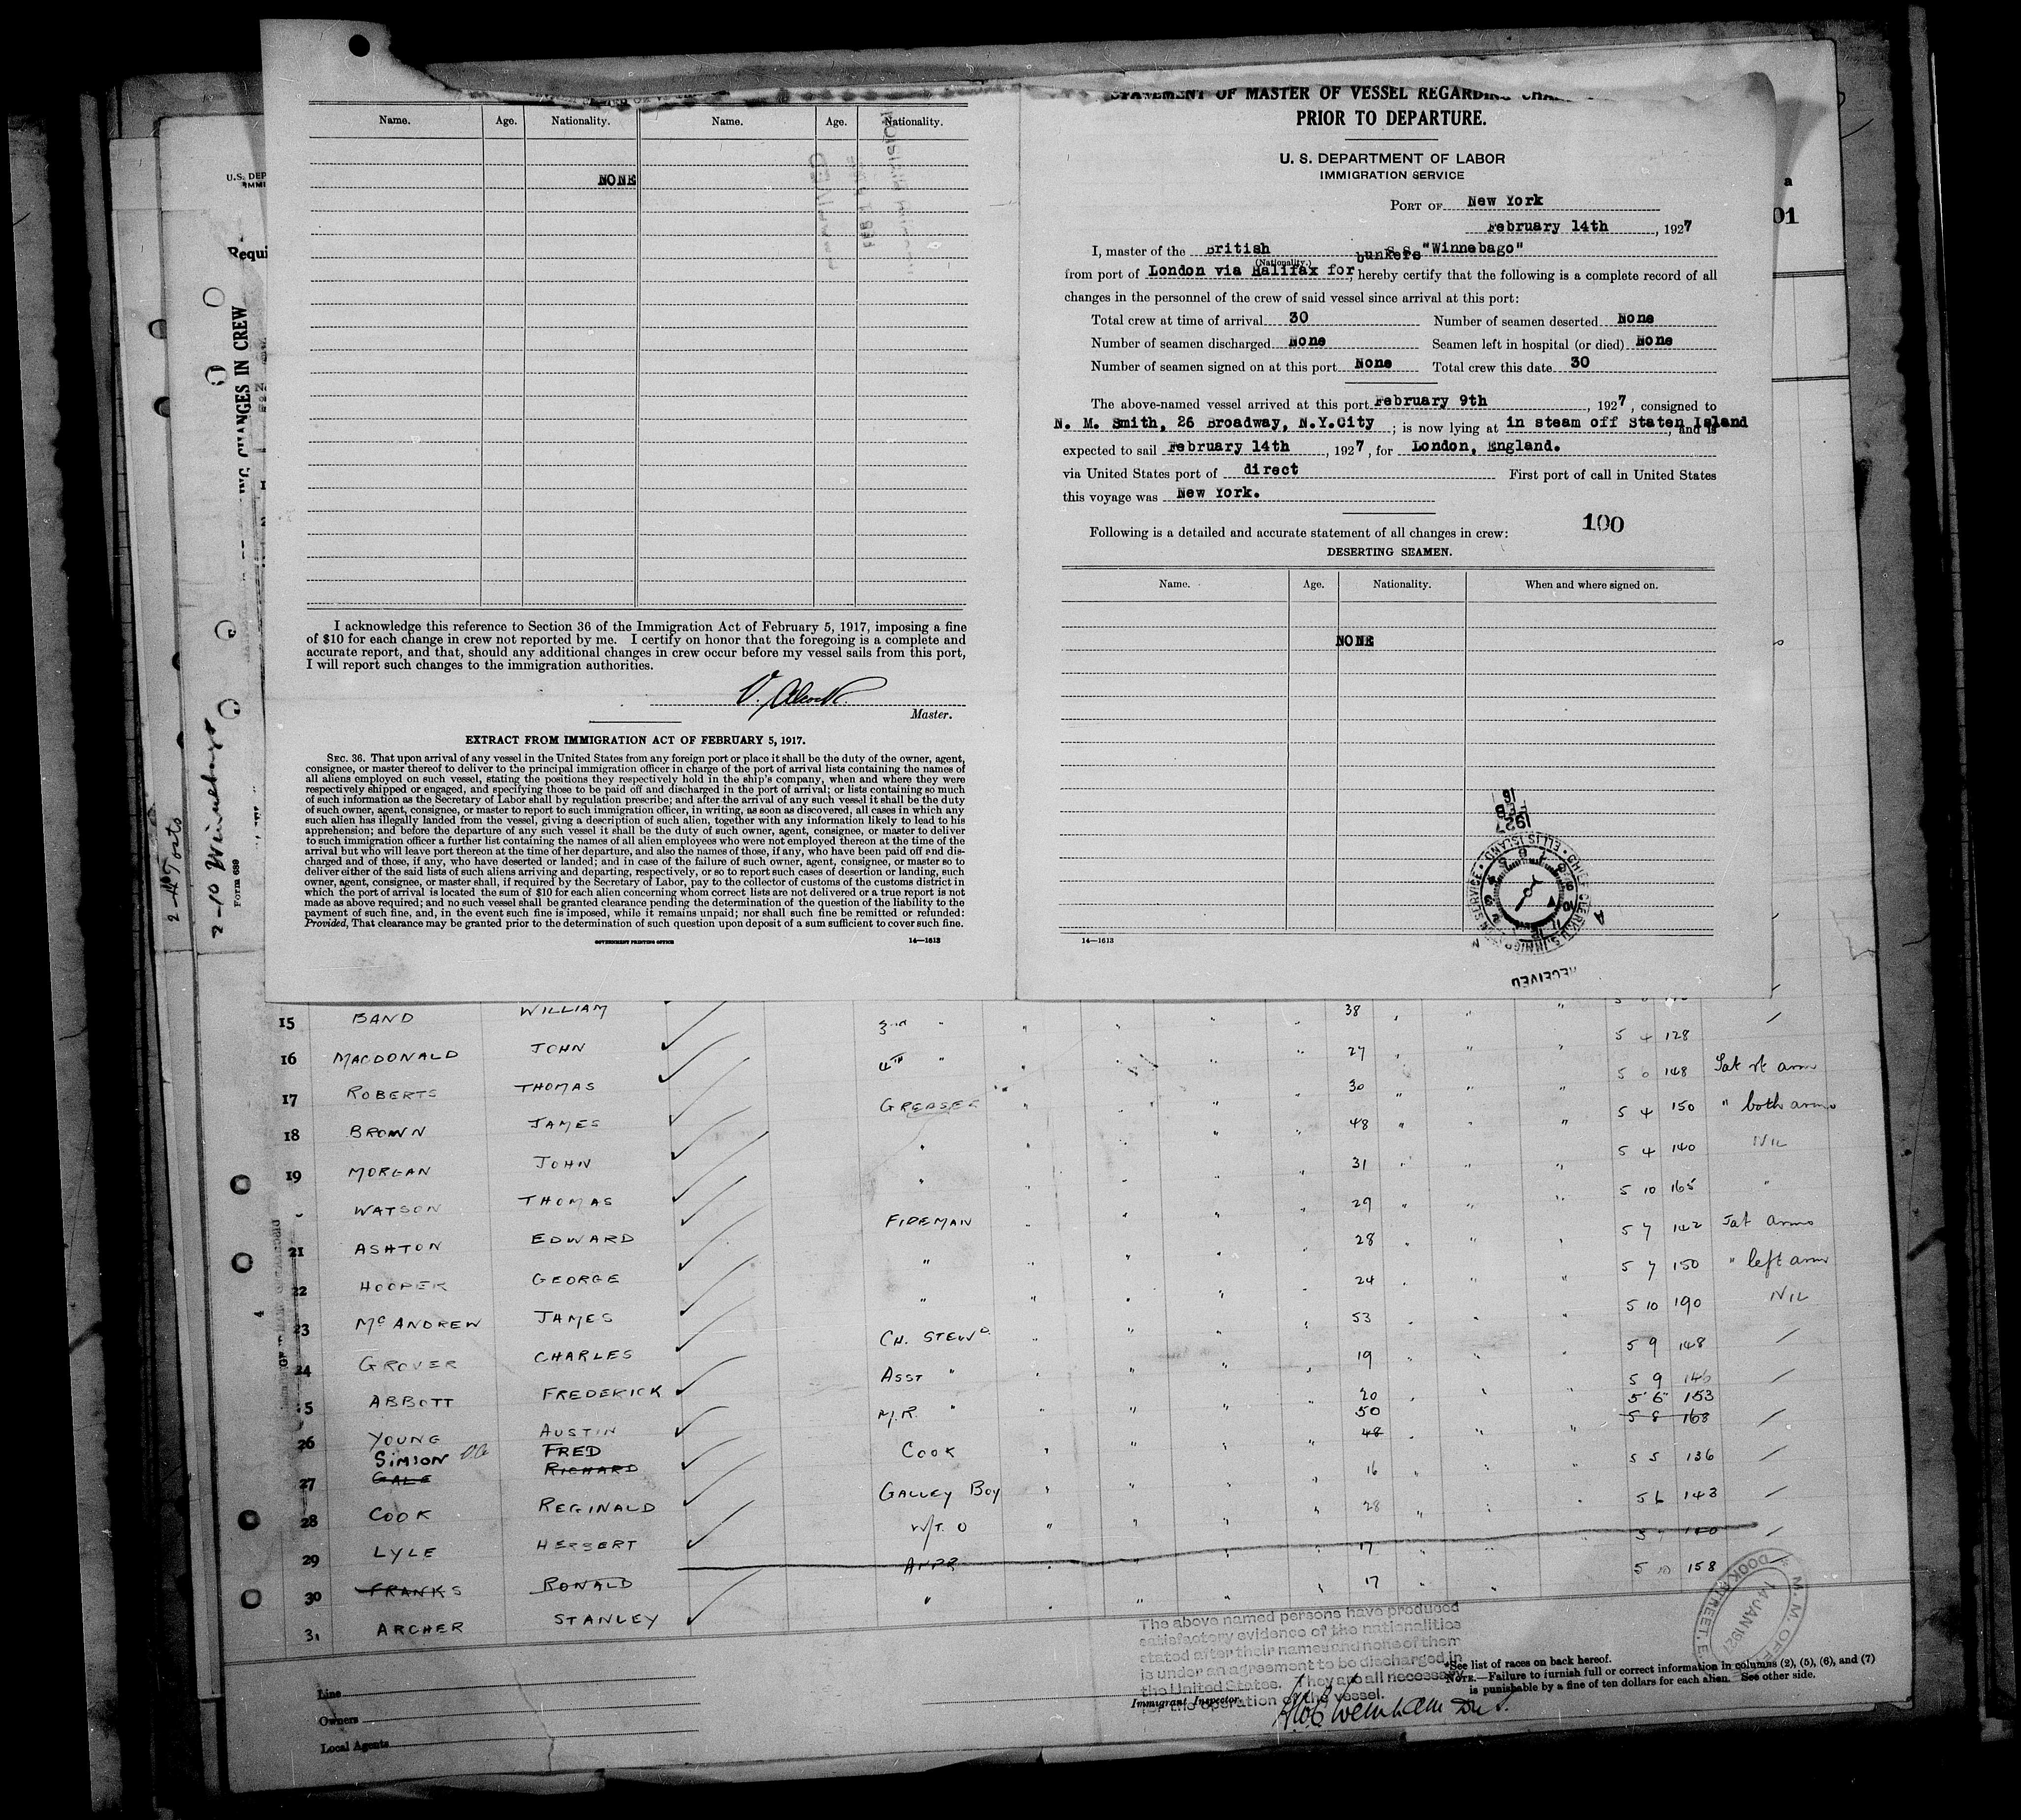 Name. Age. Nationality. Name. Age. Nationality.
NONE
I acknowledge this reference to Section 36 of the Immigration Act of February 5, 1917, imposing a fine
of $10 for each change in crew not reported by me. I certify on honor that the foregoing is a complete and
accurate report, and that, should any additional changes in crew occur before my vessel sails from this port,
I will report such changes to the immigration authorities.
Master.
EXTRACT FROM IMMIGRATION ACT OF FEBRUARY 5, 1917.
SEC. 36. That upon arrival of any vessel in the United States from any foreign port or place it shall be the duty of the owner, agent,
consignee, or master thereof to deliver to the principal immigration officer in charge of the port of arrival lists containing the names of
all aliens employed on such vessel, stating the positions they respectively hold in the ship's company, when and where they were
respectively shipped or engaged, and specifying those to be paid off and discharged in the port of arrival; or lists containing so much
of such information as the Secretary of Labor shall by regulation prescribe; and after the arrival of any such vessel it shall be the duty
of such owner, agent, consignee, or master to report to such immigration officer, in writing, as soon as discovered, all cases in which any
such alien has illegally landed from the vessel, giving a description of such alien, together with any information likely to lead to his
apprehension; and before the departure of any such vessel it shall be the duty of such owner, agent, consignee, or master to deliver
to such immigration officer a further list containing the names of all alien employees who were not employed thereon at the time of the
arrival but who will leave port thereon at the time of her departure, and also the names of those, if any, who have been paid off and dis-
charged and of those, if any, who have deserted or landed; and in case of the failure of such owner, agent, consignee, or master so to
deliver either of the said lists of such aliens arriving and departing, respectively, or so to report such cases of desertion or landing, such
owner, agent, consignee, or master shall, if required by the Secretary of Labor, pay to the collector of customs of the customs district in
which the port of arrival is located the sum of $10 for each alien concerning whom correct lists are not delivered or a true report is not
made as above required; and no such vessel shall be granted clearance pending the determination of the question of the liability to the
payment of such fine, and, in the event such fine is imposed, while it remains unpaid; nor shall such fine be remitted or refunded:
Provided, That clearance may be granted prior to the determination of such question upon deposit of a sum sufficient to cover such fine.
GOVERNMENT PRINTING OFFICE 14—1613
STATEMENT OF MASTER OF VESSEL REGARDING
PRIOR TO DEPARTURE.
U. S. DEPARTMENT OF LABOR
IMMIGRATION SERVICE
PORT OF New York
February 14th, 1927
I, master of the British S.S. "Winnebago"
(Nationality.)
from port of London via Halifax for bunkers, hereby certify that the following is a complete record of all
changes in the personnel of the crew of said vessel since arrival at this port:
Total crew at time of arrival 30 Number of seamen deserted None
Number of seamen discharged None Seamen left in hospital (or died) None
Number of seamen signed on at this port None Total crew this date 30
The above-named vessel arrived at this port February 9th, 1927, consigned to
N. M. Smith, 26 Broadway, N.Y.City; is now lying at in steam off Staten Island, and is
expected to sail February 14th, 1927, for London, England.
via United States port of direct First port of call in United States
this voyage was New York.
100
Following is a detailed and accurate statement of all changes in crew:
DESERTING SEAMEN.
Name. Age. Nationality. When and where signed on.
NONE
16 FEB 1927
CHIEF CLERK U.S. IMMIGRATION SERVICE ELLIS ISLAND
RECEIVED
14—1613
U.S. DEP
IMMI
Requi
CHANGES IN CREW
2-10 Winnebago
Form 689
01
15 BAND WILLIAM 3RD " 38
16 MACDONALD JOHN 4TH " 27 5 4 128
17 ROBERTS THOMAS GREASER 30 5 6 148 Tat rt arm
18 BROWN JAMES " 48 5 4 150 " both arms
19 MORGAN JOHN " 31 5 4 140 NIL
WATSON THOMAS FIREMAN 29 5 10 165 "
21 ASHTON EDWARD " 28 5 7 142 Tat arms
22 HOOPER GEORGE " 24 5 7 150 " left arm
23 McANDREW JAMES CH. STEWD 53 5 10 190 NIL
24 GROVER CHARLES ASST " 19 5 9 148
5 ABBOTT FREDERICK M.R. " 20 5 9 146
26 YOUNG AUSTIN COOK 50 48 5 6 153 5 8 168
SIMSON FRED
27 GALE RICHARD GALLEY BOY 16 5 5 136
28 COOK REGINALD W/T. O 28 5 6 143
29 LYLE HERBERT APPR 17
30 FRANKS RONALD " 17 5 10 158
31 ARCHER STANLEY
The above named persons have produced
satisfactory evidence of the nationalities
stated after their names and none of them
is under an agreement to be discharged in
the United States. They are all necessary
for the operation of the vessel.
Immigrant Inspector.
Line
Owners
Local Agents
*See list of races on back hereof.
NOTE.—Failure to furnish full or correct information in columns (2), (5), (6), and (7)
is punishable by a fine of ten dollars for each alien. See other side.
M.M. OFFICE
14 JAN 1927
DOCK STREET, E.